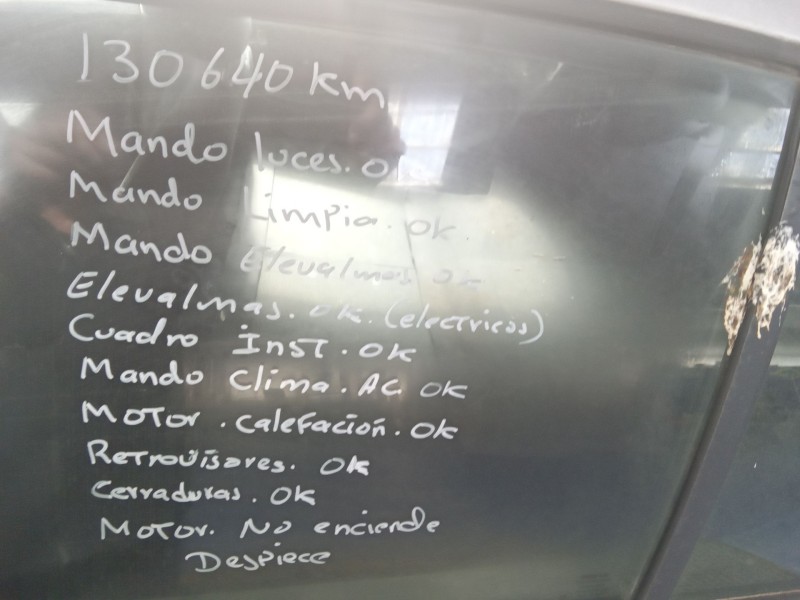 130640 km
Mando luces. ok
Mando Limpia. ok.
Mando Elevalmas ok
Elevalmas. ok. (electricos)
Cuadro Inst. ok
Mando Clima. AC. ok
Motor. calefación. ok
Retrovisores. ok
Cerraduras. ok
Motor. No enciende
Despiece